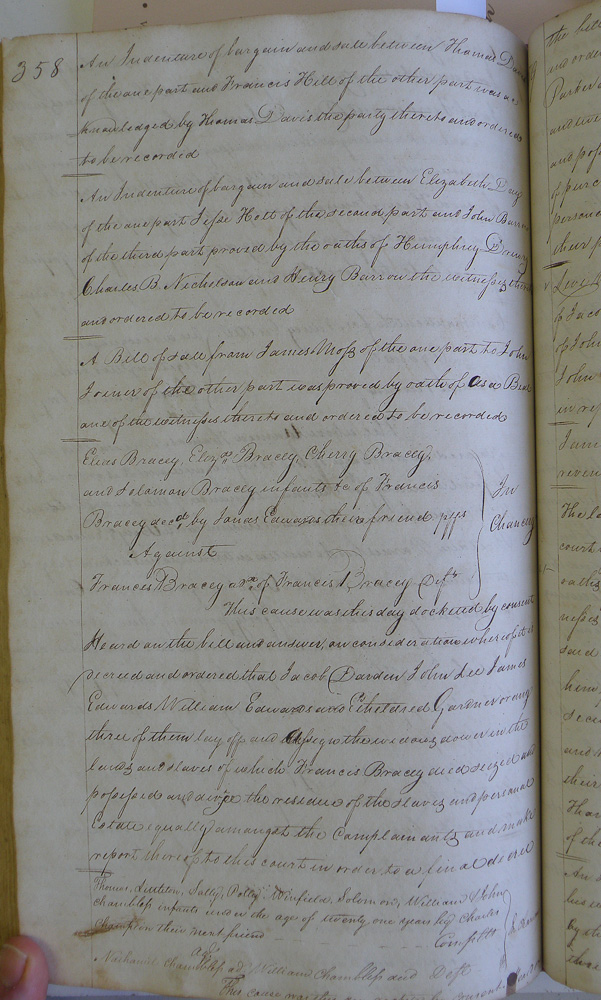 358
An Indenture of bargain and sale between Thomas Davis
of the one part and Francis Hill of the other part was ac
knowledged by Thomas Davis the party thereto and ordered
to be recorded
An Indenture of bargain and sale between Elizabeth
of the one part Jesse Holt of the second part and John Barrow
of the third part proved by the oaths of Humphrey Drewry
Charles B. Nicholson and Henry Barrow the witnesses thereto
and ordered to be recorded
A Bill of sale from James Moss of the one part to John
Joiner of the other part was proved by oath of Asa Beal
one of the witnesses thereto and ordered to be recorded
Elias Bracey, Elizath Bracey, Cherry Bracey,
and Soloman Bracey infants &c of Francis
Bracey decd by Jonas Edwards their friend plfs
Against
Frances Bracey exx of Francis Bracey Deft
In
Chancery
This cause was this day docketed by consent
Heard on the bill and answer, on consideration whereof it is
decreed and ordered that Jacob Darden John Lee James
Edwards William Edwards and Etheldred Gardner or any
three of them lay off and Assign the widows dower in the
lands and slaves of which Francis Bracey died seized and
possessed and divide the residue of the slaves and personal
Estate equally amongst the Complainants and make
report thereof to this court in order to a final decree
Thomas, Littleton, Sally, Polly, Winfield, Solomon, William & John
Chambless infants under the age of twenty one years by Charles
Champion their next friend
Complts
Nathaniel Chambless ad
William Chambless and Deft
This cause was this